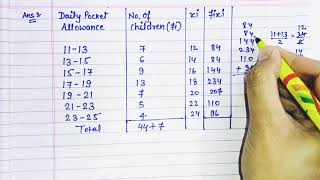 Ans 3
Daily Pocket Allowance No. of children (fi) xi fixi
11-13 7 12 84
13-15 6 14 84
15-17 9 16 144
17-19 13 18 234
19-21 f 20 20f
21-23 5 22 110
23-25 4 24 96
Total 44+f
84
84
144
234
110
12
11+13 = 24
2 2